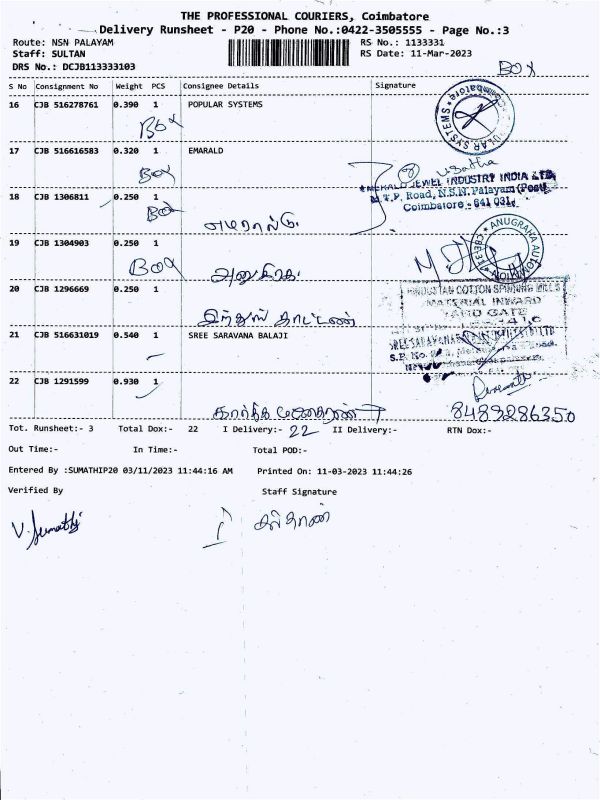 THE PROFESSIONAL COURIERS, Coimbatore
Delivery Runsheet - P20 - Phone No.:0422-3505555 - Page No.:3
Route: NSN PALAYAM RS No.: 1133331
Staff: SULTAN RS Date: 11-Mar-2023
DRS No.: DCJB113333103 BOX
S No Consignment No Weight PCS Consignee Details Signature
16 CJB 516278761 0.390 1 POPULAR SYSTEMS
BOX
17 CJB 516616583 0.320 1 EMARALD
BOX
EMERALD JEWEL INDUSTRY INDIA LTD
M.T.P. Road, N.S.N. Palayam (Post)
Coimbatore - 641 031.
18 CJB 1306811 0.250 1
BOX
எமரால்டு
19 CJB 1304903 0.250 1
BOX அனுகிரக
ANUGRAHA
20 CJB 1296669 0.250 1
HINDUSTAN COTTON SPINNING MILLS
MATERIAL INWARD
YARD GATE
21 CJB 516631019 0.540 1 SREE SARAVANA BALAJI
22 CJB 1291599 0.930 1
8489286350
Tot. Runsheet:- 3 Total Dox:- 22 I Delivery:- 22 II Delivery:- RTN Dox:-
Out Time:- In Time:- Total POD:-
Entered By :SUMATHIP20 03/11/2023 11:44:16 AM Printed On: 11-03-2023 11:44:26
Verified By Staff Signature
V. Sumathi சுல்தான்